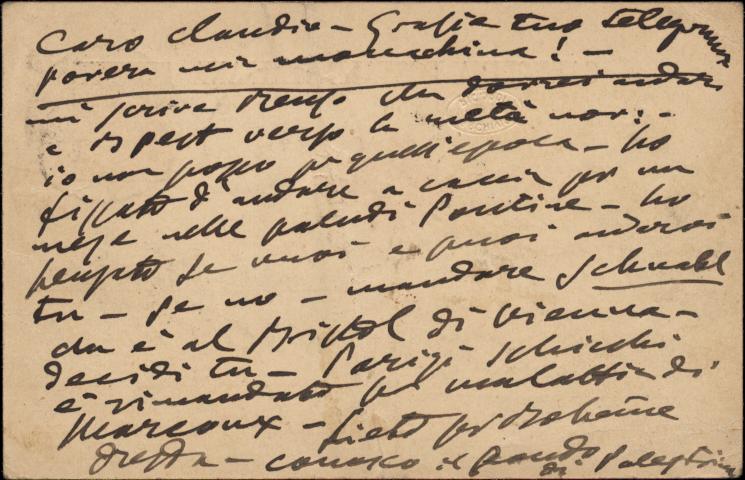 Caro Claudio – Grazie tuo telegramma
povera mia macchina! –
mi scrive Renzo che dovrei andare
a Bpest verso la metà nov: –
io non posso per quell'epoca – ho
fissato d'andare a caccia per un
mese nelle paludi Pontine – ho
pensato se vuoi e puoi andarci
tu – se no – mandare Schnabl
che è al Bristol di Vienna –
decidi tu – Parigi Schicchi
è rimandato per malattia di
Marcoux – Lieto per Bohème
Dresda – conosco il
di